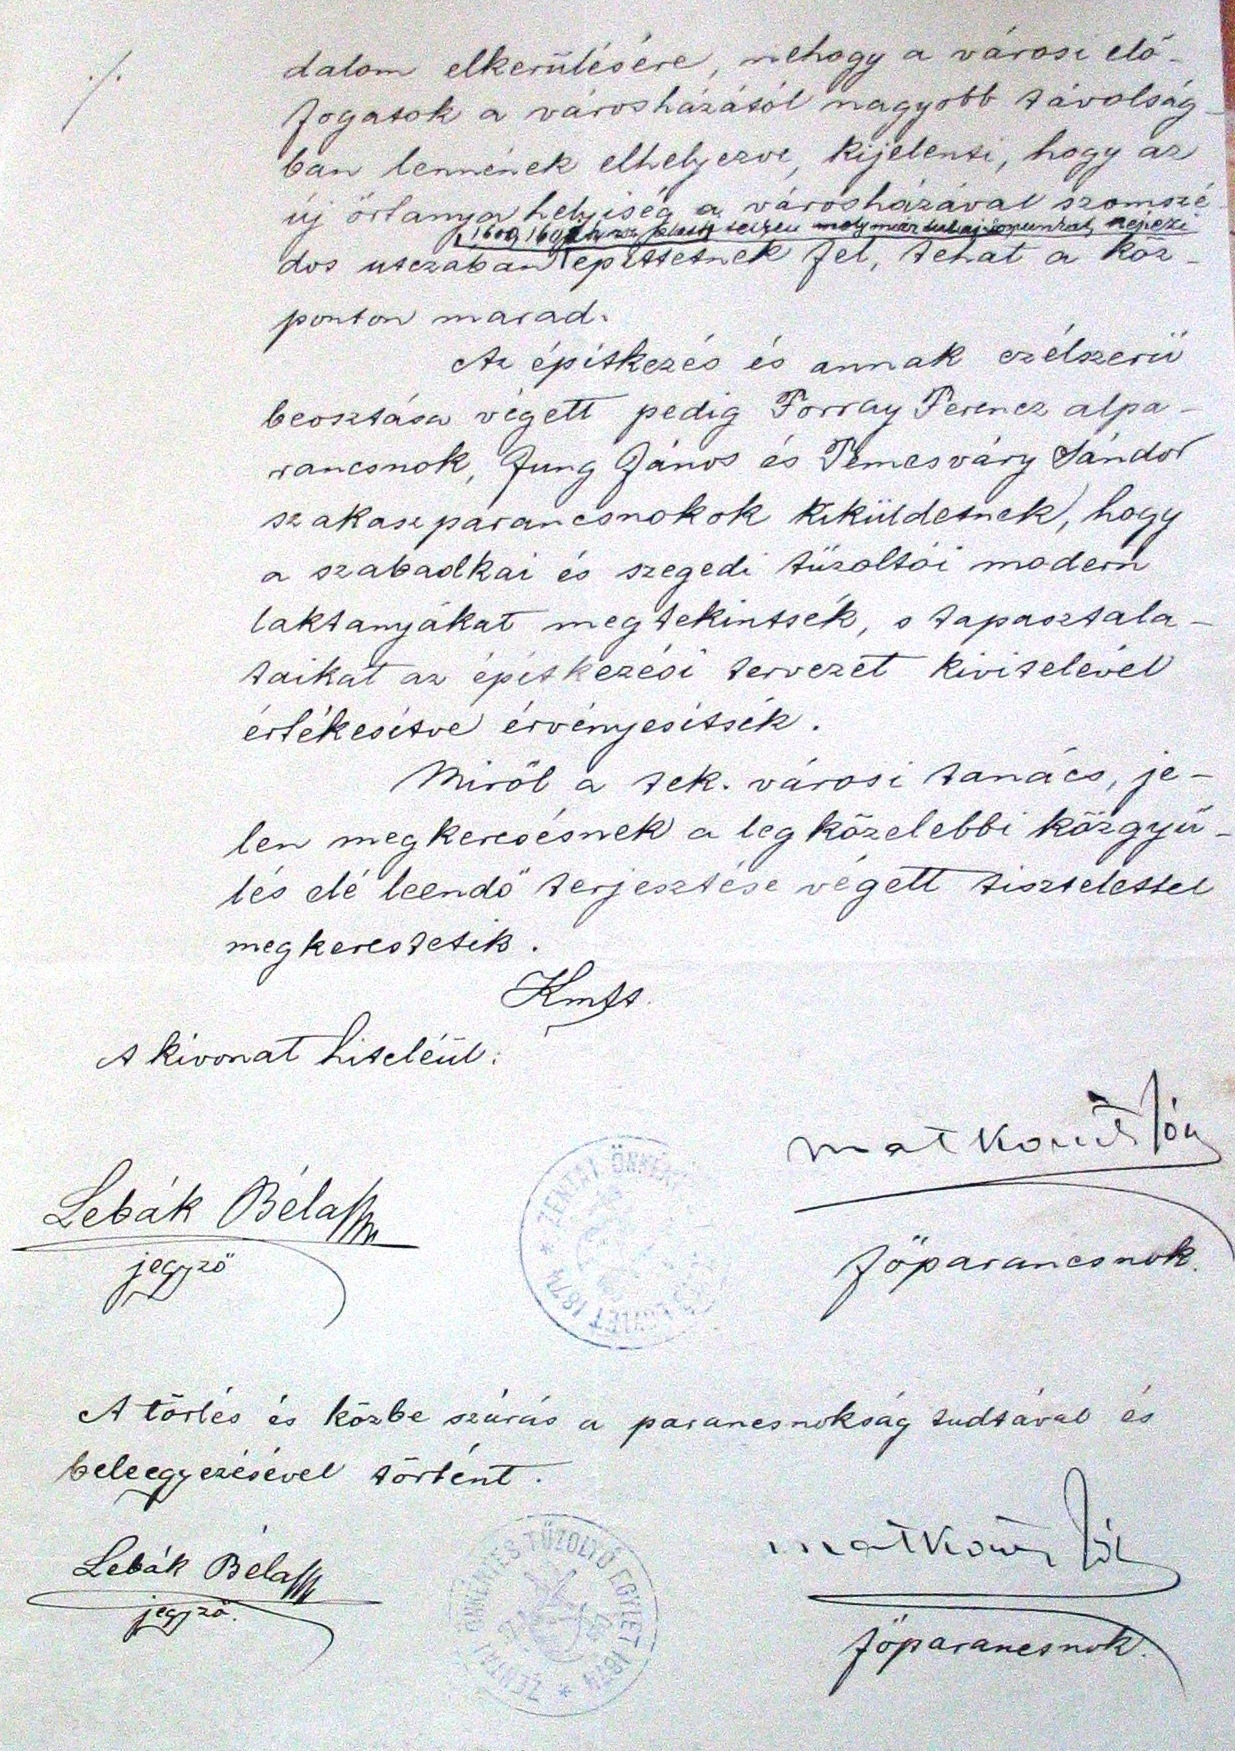 dalom elkerülésére, nehogy a városi elő-
fogatok a városházától nagyobb távolság-
ban lennének elhelyezve, kijelenti, hogy az
új őrtanya helyiség a városházával szomszé-
dos utczában építtetnek fel, tehát a köz-
ponton marad.
Az építkezés és annak czélszerű
beosztása végett pedig Forray Ferencz alpa-
rancsnok, Jung János és Temesváry Sándor
szakaszparancsnokok kiküldetnek, hogy
a szabadkai és szegedi tűzoltói modern
laktanyákat megtekintsék, s tapasztala-
taikat az építkezési tervezet kivitelével
értékesítve érvényesítsék.
Miről a tek. városi tanács, je-
len megkeresésnek a legközelebbi közgyű-
lés elé leendő terjesztése végett tisztelettel
megkerestetik.
Kmft.
A kivonat hiteléül:
Lebák Béla
jegyző
ZENTAI ÖNKÉN EGYLET 1874
főparancsnok.
A törlés és közbe szúrás a parancsnokság tudtával és
beleegyezésével történt.
Lebák Béla
jegyző.
ZENTAI ÖNKÉNTES TŰZOLTÓ EGYLET 1874
főparancsnok.